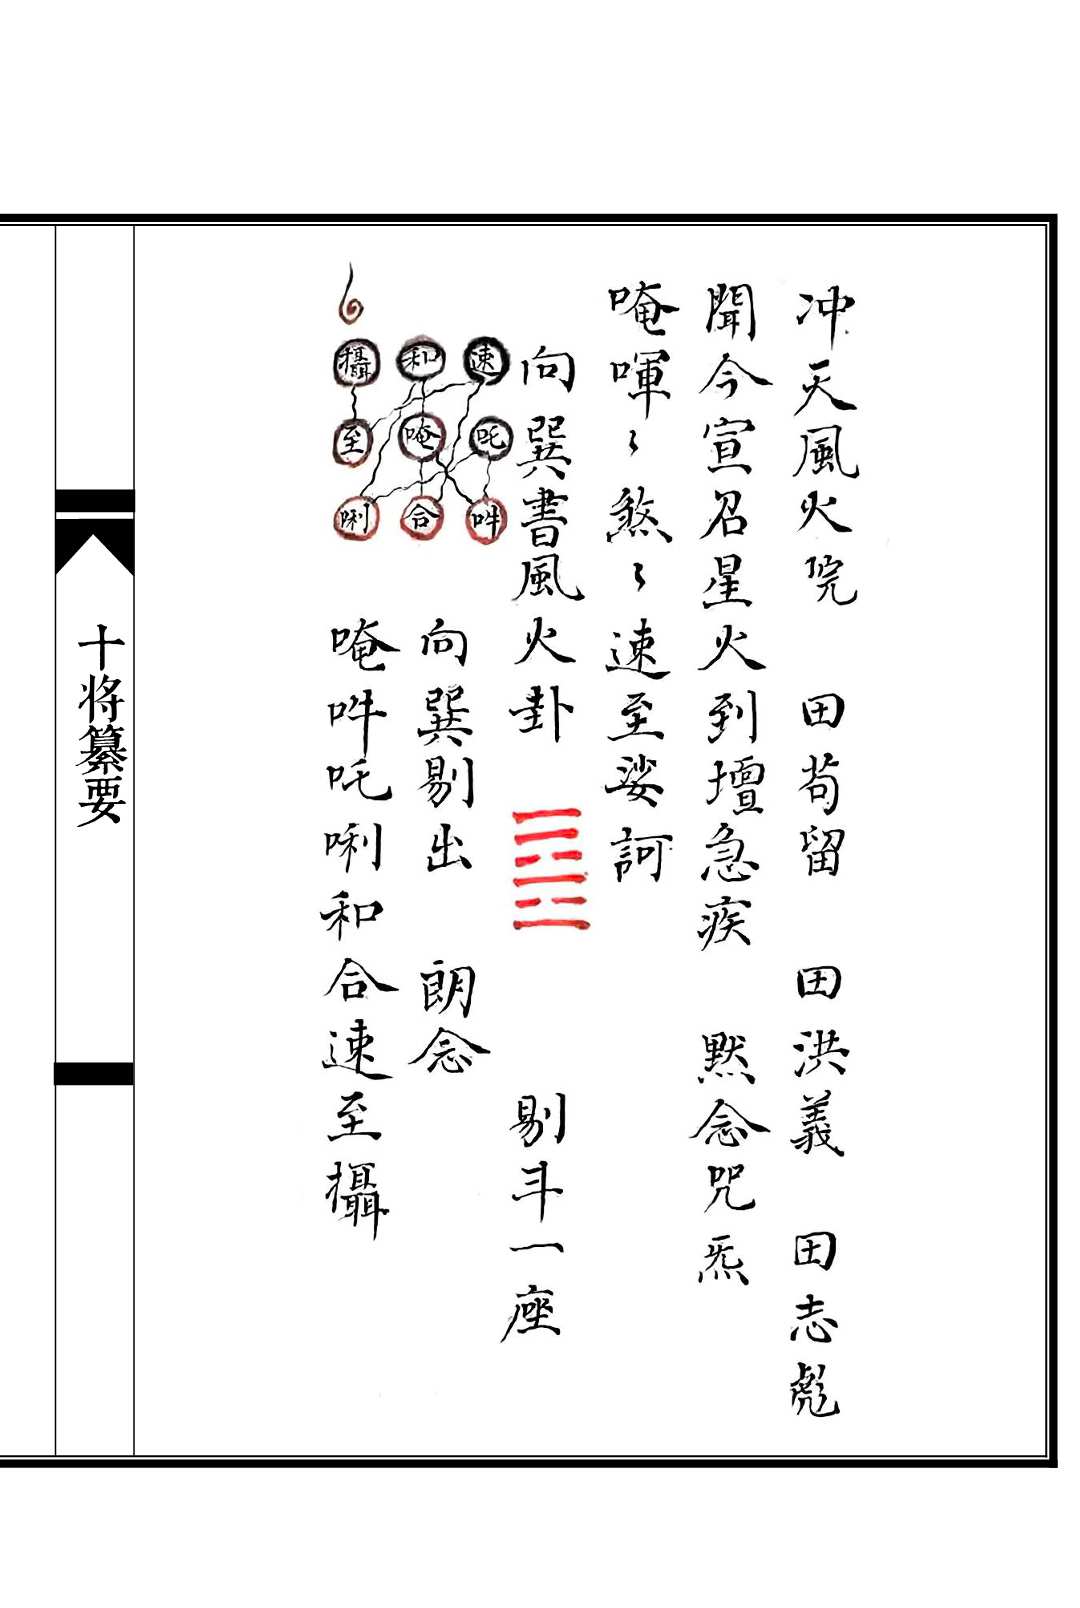 冲天風火院　田苟留　田洪義　田志彪
聞今宣召星火到壇急疾　默念咒炁
唵㖶㆑煞㆑速至娑訶
向巽書風火卦　剔斗一座
向巽剔出　朗念
唵吽吒唎和合速至攝
速 和 攝
吒 唵 至
吽 合 唎
十将纂要